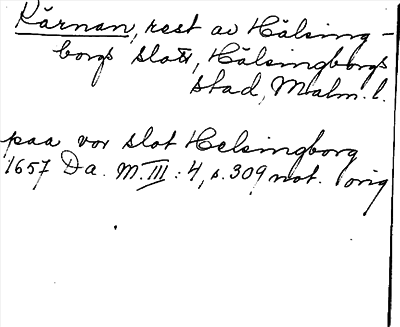 Kärnan, rest av Hälsing-
borgs slott, Hälsingborgs
stad, Malm. l.
paa vor slot Helsingborg
1657 Da. M. III: 4, s. 309 not. orig